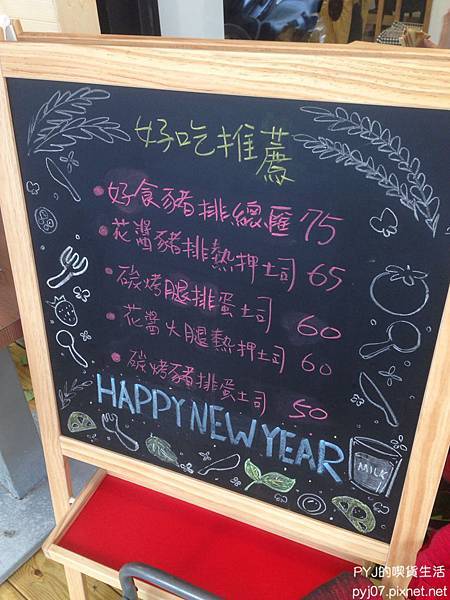 好吃推薦
好食豬排總匯 75
花醬豬排熱押土司 65
碳烤腿排蛋土司 60
花醬火腿熱押土司 60
碳烤豬排蛋土司 50
HAPPY NEW YEAR
MILK
PYJ的喫貨生活
pyj07.pixnet.net